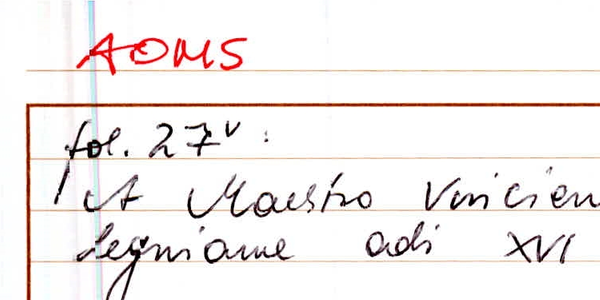 AOMS
fol. 27v :
A Maestro Vinicien
Legniame adi XVI